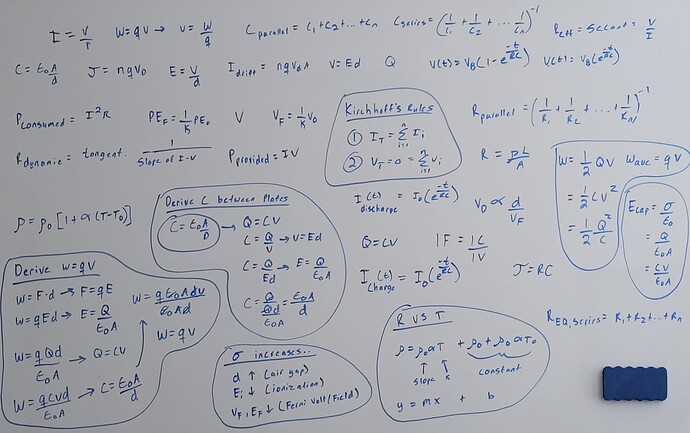 I = V/r   W = qV → V = W/q   C parallel = C₁+C₂...+Cn   C series = (1/C₁ + 1/C₂ + ... 1/Cn)⁻¹   Reff = Secant = V/I
C = ε₀A/d   J = nqV₀   E = V/d   I drift = nqVdA   V = Ed   Q   V(t) = VB(1-e^(-t/RC))   V(t) = VB(e^(-t/RC))
Pconsumed = I²R   PEF = 1/K PE₀   V   VF = 1/K V₀
Rdynamic = tangent. 1/Slope of I-V   Pprovided = IV
Kirchhoff's Rules
① IT = Σ(i=1 to n) Ii
② VT = 0 = Σ(i=1 to n) Vi
Rparallel = (1/R₁ + 1/R₂ + ... + 1/Rn)⁻¹
R = ρL/A
W = 1/2 QV   Wave = qV
= 1/2 CV²
= 1/2 Q²/C
Ecap = σ/ε₀
= Q/ε₀A
= CV/ε₀A
ρ = ρ₀[1+α(T-T₀)]
Derive C between Plates
C = ε₀A/D → Q = CV
C = Q/V → V = Ed
C = Q/Ed → E = Q/ε₀A
C = Q/(Qd/ε₀A) = ε₀A/d
I(t) discharge = I₀(e^(-t/RC))   V₀ ∝ d/VF
Q = CV   1F = 1C/1V
I(t) Charge = I₀(e^(-t/RC))   J = RC
REQ, Series = R₁+R₂...+Rn
Derive W = qV
W = F·d → F = qE
W = qEd → E = Q/ε₀A
W = qQd/ε₀A → Q = CV
W = qCVd/ε₀A → C = ε₀A/d
W = qε₀AdV/ε₀Ad
W = qV
σ increases..
d ↑ (air gap)
Ei ↓ (ionization)
VF, EF ↓ (Fermi Volt/Field)
R vs T
ρ = ρ₀αT + ρ₀+ρ₀αT₀
↑ slope   ↑ x   constant
y = mx + b